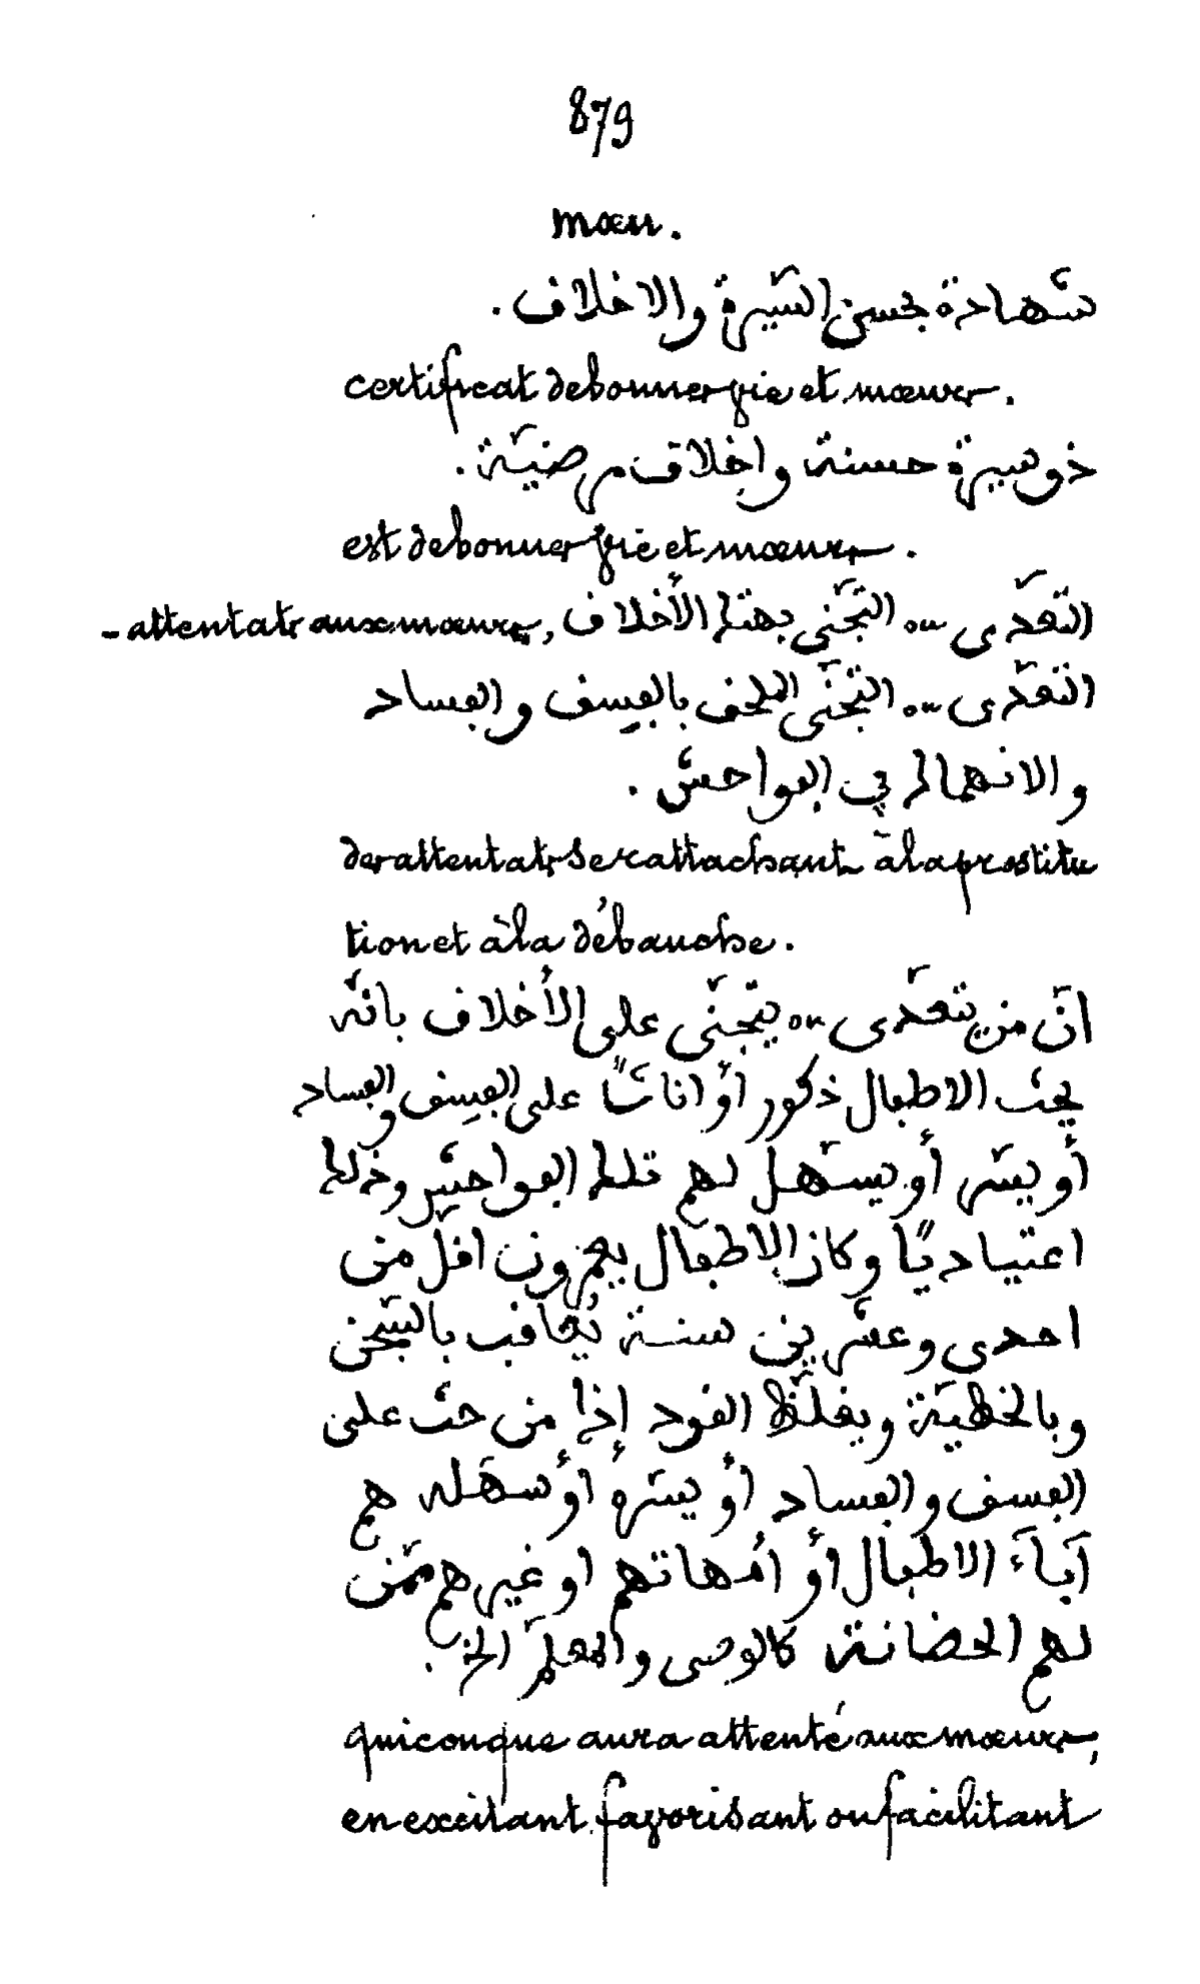 879
mœu.
شهادة بحسن السّيرة والاخلاق.
certificat de bonnes vie et mœurs.
ذو سيرة حسنة واخلاق مرضيّة.
est de bonnes vie et mœurs.
التعدّى ou التجنّى بهتك الأخلاق, attentats aux mœurs, -
التعدّى ou التجنّى الملحق بالفسق والفساد
والانهماك في الفواحش.
des attentats se rattachant à la prostitu
tion et à la débauche.
انّ من يتعدّى ou يتجنّى على الأخلاق بانّه
يحثّ الاطفال ذكور أو اناثًا على الفسق والفساد
أو ييسّر أو يسهّل لهم تلك الفواحش وذلك
اعتياديًا وكان الاطفال يعمرون اقلّ من
احدى وعشرين سنة يُعاقب بالسّجن
وبالخطيّة ويغلّظ القود إذا من حثّ على
الفسق والفساد أو يسّره أو سهّله هم
آباء الاطفال أو أمّهاتهم او غيرهم ممّن
لهم الحضانة كالوصى والمعلّم الخ.
quiconque aura attenté aux mœurs,
en excitant favorisant ou facilitant